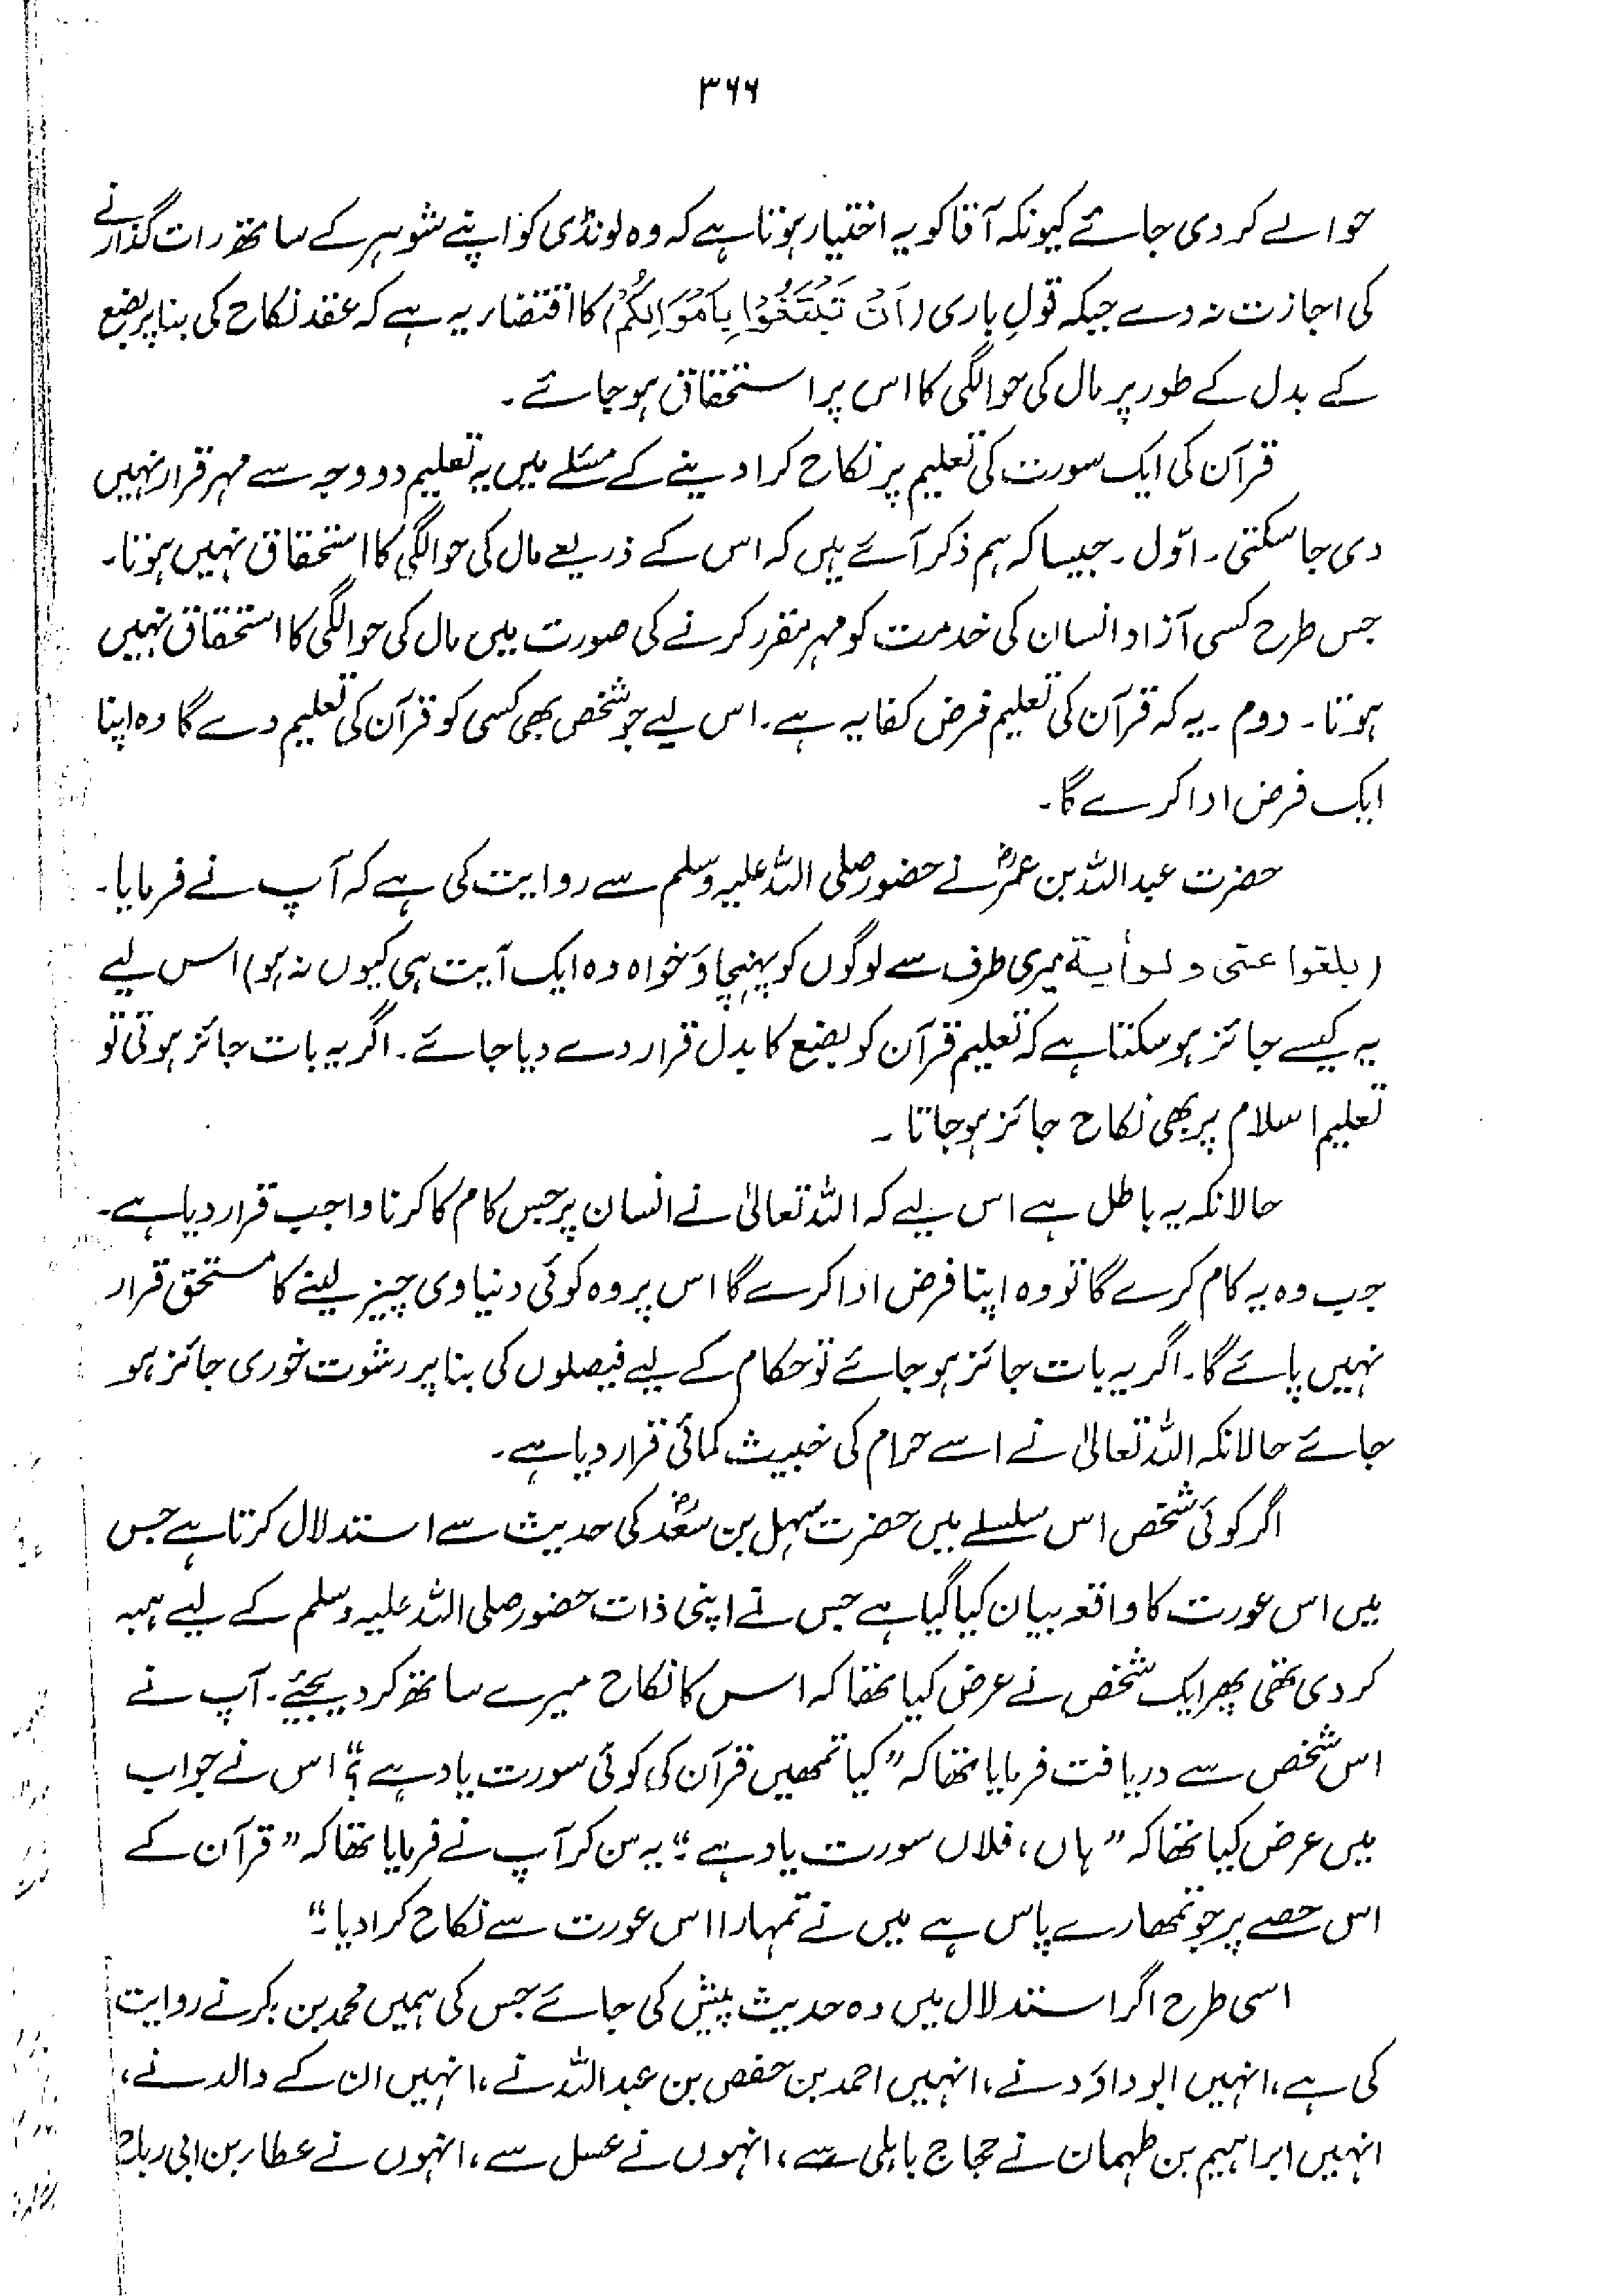 ۳۶۶
حوالے کر دی جائے کیونکہ آقا کو یہ اختیار ہوتا ہے کہ وہ لونڈی کو اپنے شوہر کے ساتھ رات گذارنے
کی اجازت نہ دے جبکہ قولِ باری (اَنْ تَبْتَغُوْا بِاَمْوَالِكُمْ) کا اقتضاء یہ ہے کہ عقد نکاح کی بنا پر بضع
کے بدل کے طور پر مال کی حوالگی کا اس پر استحقاق ہو جائے۔
قرآن کی ایک سورت کی تعلیم پر نکاح کرا دینے کے مسئلے میں یہ تعلیم دو وجہ سے مہر قرار نہیں
دی جا سکتی۔ اوّل۔ جیسا کہ ہم ذکر آئے ہیں کہ اس کے ذریعے مال کی حوالگی کا استحقاق نہیں ہوتا۔
جس طرح کسی آزاد انسان کی خدمت کو مہر مقرر کرنے کی صورت میں مال کی حوالگی کا استحقاق نہیں
ہوتا۔ دوم۔ یہ کہ قرآن کی تعلیم فرض کفایہ ہے۔ اس لیے جو شخص بھی کسی کو قرآن کی تعلیم دے گا وہ اپنا
ایک فرض ادا کرے گا۔
حضرت عبداللہ بن عمرؓ نے حضور صلی اللہ علیہ وسلم سے روایت کی ہے کہ آپ نے فرمایا۔
(بلغوا عنی ولو اٰیة میری طرف سے لوگوں کو پہنچاؤ خواہ وہ ایک آیت ہی کیوں نہ ہو) اس لیے
یہ کیسے جائز ہو سکتا ہے کہ تعلیم قرآن کو بضع کا بدل قرار دے دیا جائے۔ اگر یہ بات جائز ہوتی تو
تعلیم اسلام پر بھی نکاح جائز ہو جاتا۔
حالانکہ یہ باطل ہے اس لیے کہ اللہ تعالیٰ نے انسان پر جس کام کا کرنا واجب قرار دیا ہے۔
جب وہ یہ کام کرے گا تو وہ اپنا فرض ادا کرے گا اس پر وہ کوئی دنیاوی چیز لینے کا مستحق قرار
نہیں پائے گا۔ اگر یہ بات جائز ہو جائے تو حکام کے لیے فیصلوں کی بنا پر رشوت خوری جائز ہو
جائے حالانکہ اللہ تعالیٰ نے اسے حرام کی خبیث کمائی قرار دیا ہے۔
اگر کوئی شخص اس سلسلے میں حضرت سہل بن سعدؓ کی حدیث سے استدلال کرتا ہے جس
میں اس عورت کا واقعہ بیان کیا گیا ہے جس نے اپنی ذات حضور صلی اللہ علیہ وسلم کے لیے ہبہ
کر دی تھی پھر ایک شخص نے عرض کیا تھا کہ اس کا نکاح میرے ساتھ کر دیجئیے۔ آپ نے
اس شخص سے دریافت فرمایا تھا کہ ”کیا تمھیں قرآن کی کوئی سورت یاد ہے؟“ اس نے جواب
میں عرض کیا تھا کہ ”ہاں، فلاں سورت یاد ہے“ یہ سن کر آپ نے فرمایا تھا کہ ”قرآن کے
اس حصے پر جو تمھارے پاس ہے میں نے تمہارا اس عورت سے نکاح کرا دیا۔“
اسی طرح اگر استدلال میں وہ حدیث پیش کی جائے جس کی ہمیں محمد بن بکر نے روایت
کی ہے، انہیں ابو داؤد نے، انہیں احمد بن حفص بن عبداللہ نے، انہیں ان کے والد نے،
انہیں ابراہیم بن طہمان نے حجاج باہلی سے، انہوں نے عسل سے، انہوں نے عطار بن ابی رباح